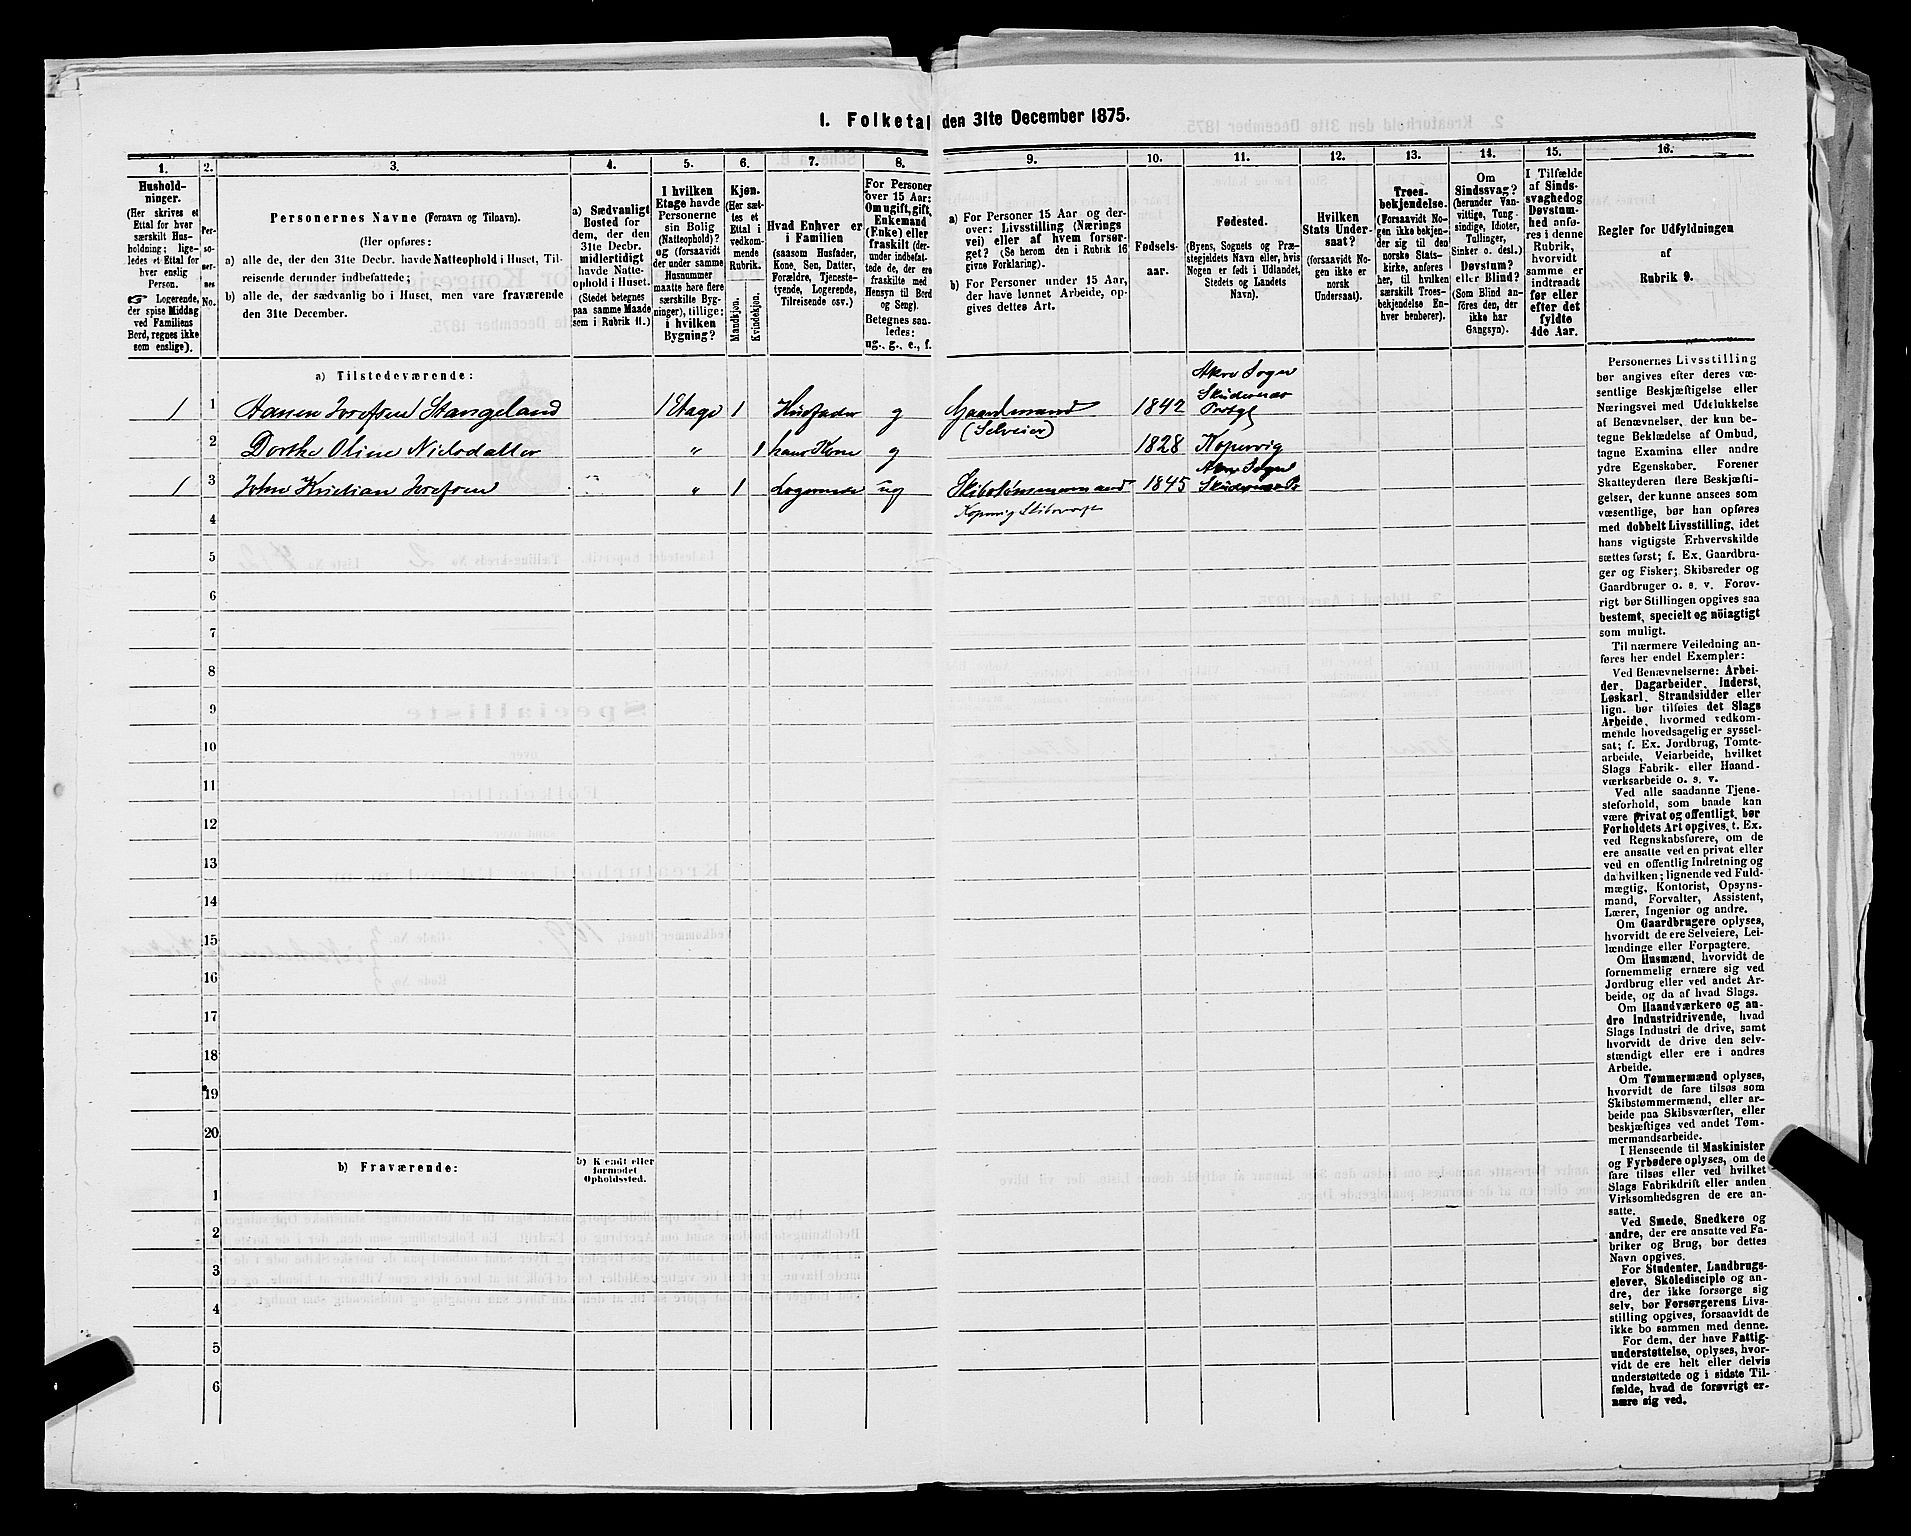 1. Folketal den 31te December 1875.
1.
2.
3.
4.
5.
6.
7.
8.
9.
10.
11.
12.
13.
14.
15.
16.
Hushold-
ninger.
(Her skrives et
Ettal for hver
særskilt Hus-
holdning; lige-
ledes et Ettal for
hver enslig
Person.
☞ Logerende,
der spise Middag
ved Familiens
Bord, regnes ikke
som enslige).
Per-
so-
ner-
nes
No.
Personernes Navne (Fornavn og Tilnavn).
(Her opføres:
a) alle de, der den 31te Decbr. havde Natteophold i Huset, Til-
reisende derunder indbefattede;
b) alle de, der sædvanlig bo i Huset, men vare fraværende
den 31te December.
a) Sædvanligt
Bosted for
dem, der den
31te Decbr.
midlertidigt
havde Natte-
ophold i Huset.
(Stedet betegnes
paa samme Maade
som i Rubrik 11.)
I hvilken
Etage havde
Personerne
sin Bolig
(Natteophold)?
og (forsaavidt
der under samme
Husnummer
maatte høre flere
særskilte Byg-
ninger), tillige:
i hvilken
Bygning?
Kjøn.
(Her sæt-
tes et
Ettal i
vedkom-
mende
Rubrik.
Mandkjøn.
Kvindekjøn.
Hvad Enhver er
i Familien
(saasom Husfader,
Kone, Søn, Datter,
Forældre, Tjeneste-
tyende, Logerende,
Tilreisende osv.)
For Personer
over 15 Aar:
Om ugift, gift,
Enkemand
(Enke) eller
fraskilt (der-
under indbefat-
tede de, der ere
fraskilte med
Hensyn til Bord
og Seng).
Betegnes saa-
ledes:
ug., g., e., f.
a) For Personer 15 Aar og der-
over: Livsstilling (Nærings
vei) eller af hvem forsør-
get? (Se herom den i Rubrik 16
givne Forklaring).
b) For Personer under 15 Aar,
der have lønnet Arbeide, op-
gives dettes Art.
Fødsels-
aar.
Fødested.
(Byens, Sognets og Præ-
stegjeldets Navn eller, hvis
Nogen er født i Udlandet,
Stedets og Landets
Navn).
Hvilken
Stats Under-
saat?
(forsaavidt No-
gen ikke er
norsk
Undersaat).
Troes-
bekjendelse.
(Forsaavidt No-
gen ikke bekjen-
der sig til den
norske Stats-
kirke, anføres
her, til hvilken
særskilt Troes-
bekjendelse En-
hver henhører).
Om
Sindssvag?
(herunder Van-
vittige, Tung-
sindige, Idioter,
Tullinger,
Sinker o. desl.)
Døvstum?
eller Blind?
(Som Blind an-
føres den, der
ikke har
Gangsyn).
I Tilfælde
af Sinds-
svaghedog
Døvstum-
hed anfø-
res i denne
Rubrik,
hvorvidt
samme er
indtraadt
før eller
efter det
fyldte
4de Aar.
Regler for Udfyldningen
af
Rubrik 9.
a) Tilstedeværende:
1 1 Stangeland 1 Etage 1 Husfader g Gaardmand 1842 Akre Sogn Skudenes
(Selveier)
2 Dorthe Oline Nielsdatter " 1 hans Kone g 1828 Kopervig
1 3 John Kristian " 1 Logerende ug Skibstømmermand 1845 Akre Sogn Skudenes Pr
Kopervig
4
5
6
7
8
9
10
11
12
13
14
15
16
17
18
19
20
b) Fraværende:
b) Kendt eller
formodet
Opholdssted.
1
2
3
4
5
6
Personernes Livsstilling
bør angives efter deres væ-
sentlige Beskjæftigelse eller
Næringsvei med Udelukkelse
af Benævnelser, der kun be-
tegne Beklædelse af Ombud,
tagne Examina eller andre
ydre Egenskaber. Forener
Skatteyderen flere Beskjæfti-
gelser, der kunne ansees som
væsentlige, bør han opføres
med dobbelt Livsstilling, idet
hans vigtigste Erhvervskilde
sættes først; f. Ex. Gaardbru-
ger og Fisker; Skibsreder og
Gaardbruger o. s. v. Forøv-
rigt bør Stillingen opgives saa
bestemt, specielt og nöiagtigt
som muligt.
Til nærmere Veiledning an-
føres her endel Exempler:
Ved Benævnelserne: Arbei-
der, Dagarbeider, Inderst,
Løskarl, Strandsidder eller
lign. bør tilføies det Slags
Arbeide, hvormed vedkom-
mende hovedsagelig er syssel-
sat; f. Ex. Jordbrug, Tomte-
arbeide, Veiarbeide, hvilket
Slags Fabrik- eller Haand-
værksarbeide o. s. v.
Ved alle saadanne Tjene-
steforhold, som baade kan
være privat og offentligt, bør
Forholdets Art opgives, t. Ex.
ved Regnskabsførere, om de
ere ansatte ved en privat eller
ved en offentlig Indretning og
da hvilken; lignende ved Fuld-
mægtig, Kontorist, Opsyns-
mand, Forvalter, Assistent,
Lærer, Ingeniør og andre.
Om Gaardbrugere oplyses,
hvorvidt de ere Selveiere, Lei-
lændinge eller Forpagtere.
Om Husmænd, hvorvidt de
fornemmelig ernære sig ved
Jordbrug eller ved andet Ar-
beide, og da af hvad Slags.
Om Haandværkere og an-
dre Industridrivende, hvad
Slags Industri de drive, samt
hvorvidt de drive den selv-
stændigt eller ere i andres
Arbeide.
Om Tømmermænd oplyses,
hvorvidt de fare tilsøs som
Skibstømmermænd, eller ar-
beide paa Skibsværfter, eller
beskjæftiges ved andet Tøm-
mermandsarbeide.
I Henseende til Maskinister
og Fyrbødere oplyses, om de
fare tilsøs eller ved hvilket
Slags Fabrikdrift eller anden
Virksomhedsgren de ere an-
satte.
Ved Smede, Snedkere og
andre, der ere ansatte ved Fa-
briker og Brug, bør dettes
Navn opgives.
For Studenter, Landbrugs-
elever, Skoledisciple og an-
dre, der ikke forsørge sig
selv, bør Forsørgerens Livs-
stilling opgives, forsaavidt de
ikke bo sammen med denne.
For dem, der have Fattig-
understøttelse, oplyses, hvor-
vidt de ere helt eller delvis
understøttede og i sidste Til-
fælde, hvad de forøvrigt er-
nære sig ved.